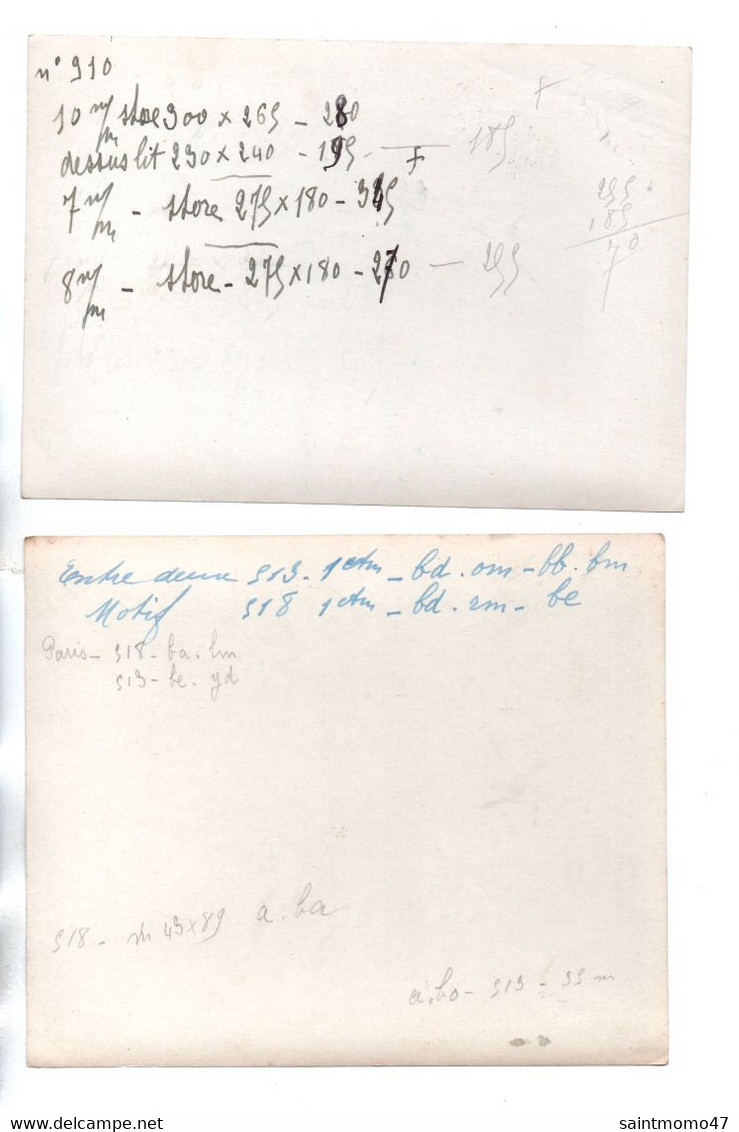 n° 910
10 m/m store 300 x 265 - 280
dessus lit 230 x 240 - 195 - F 185
7 m/m - store 275 x 180 - 345
8 m/m - store - 275 x 180 - 270 - 255
F
255
185
70
Entre deux 513 - 1 ctm - bd. om - bb. bm.
Motif 518 1 ctm - bd. rm - be
Paris - 518 - ba. lm
513 - be. yd
518 - m 43x89 a. ba
a. bo - 513 - 35 m
delcampe.net
saintmomo47